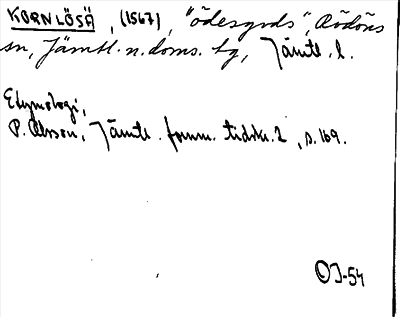 KORNLÖSÄ, (1567), "ödesgods", Rödöns
sn, Jämtl. n. doms. tg, Jämtl. l.
Etymologi,
P. Olsson, Jämtl. fornm. tidskr. 2, s. 169.
OJ-54